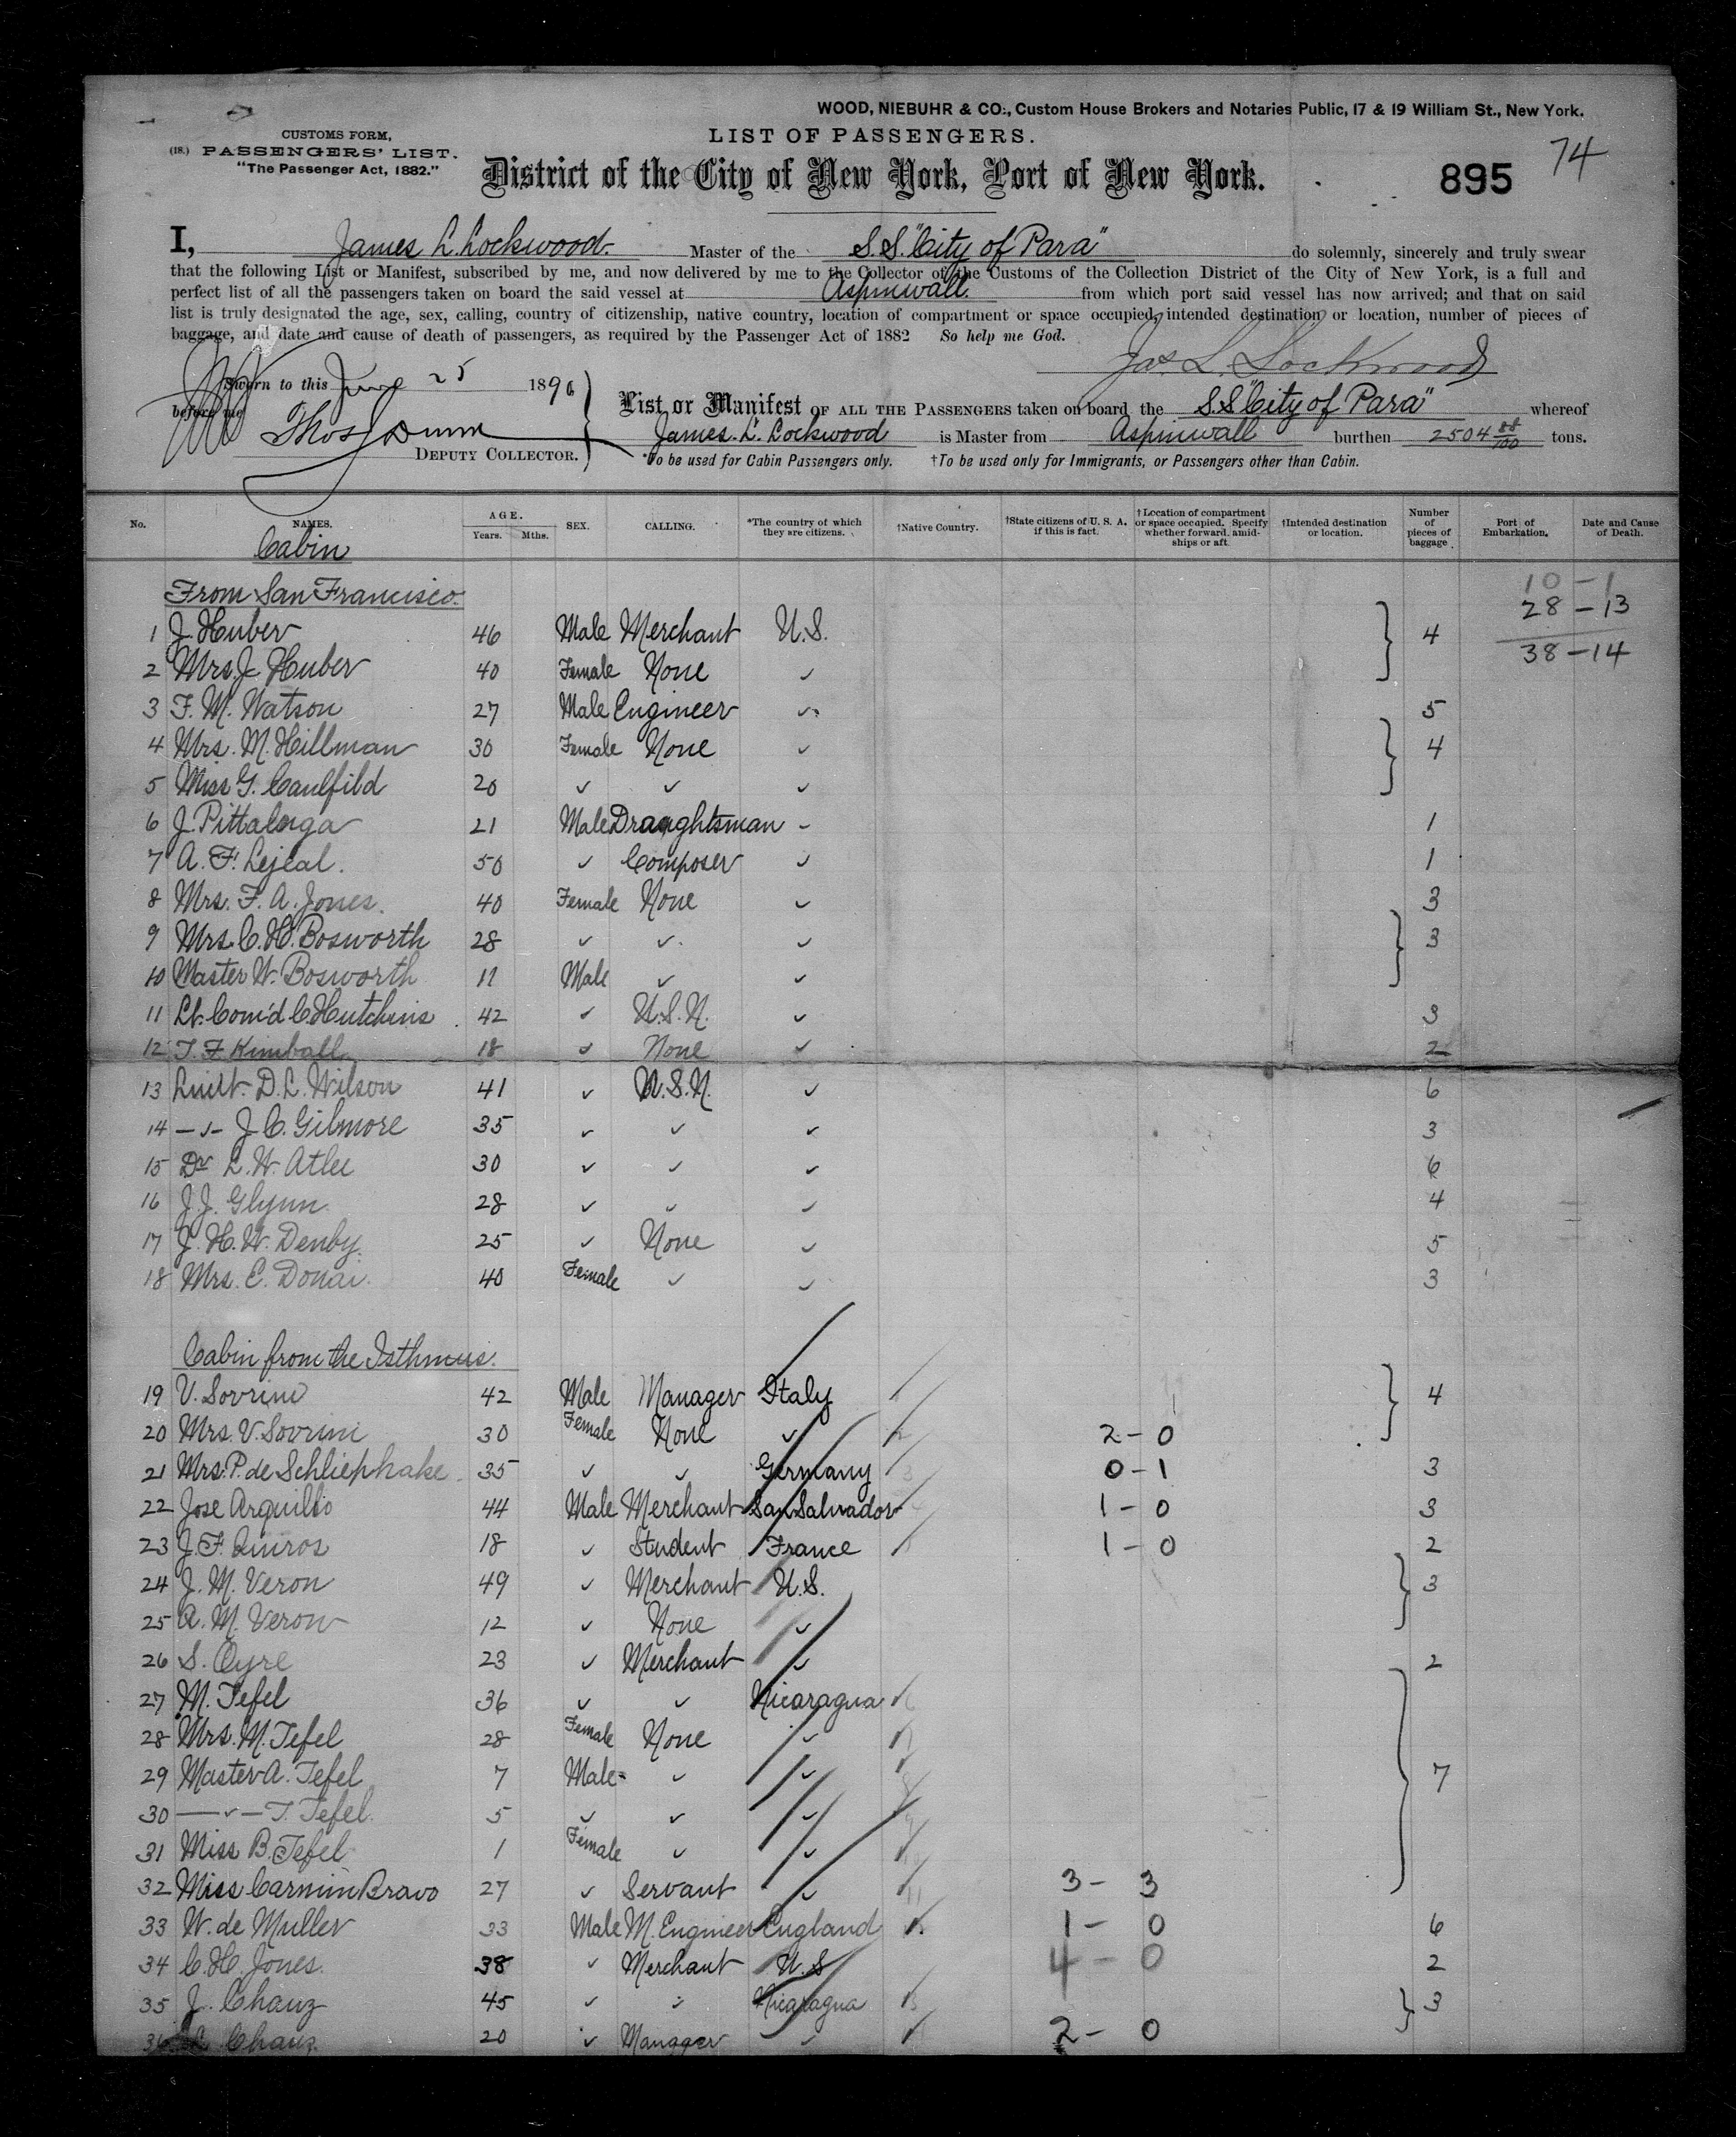 WOOD, NIEBUHR & CO., Custom House Brokers and Notaries Public, 17 & 19 William St., New York.
CUSTOMS FORM,
(18.) PASSENGERS' LIST.
"The Passenger Act, 1882."
LIST OF PASSENGERS.
District of the City of New York, Port of New York.
895 74
I, James L. Lockwood. Master of the S.S. "City of Para" do solemnly, sincerely and truly swear
that the following List or Manifest, subscribed by me, and now delivered by me to the Collector of the Customs of the Collection District of the City of New York, is a full and
perfect list of all the passengers taken on board the said vessel at Aspinwall. from which port said vessel has now arrived; and that on said
list is truly designated the age, sex, calling, country of citizenship, native country, location of compartment or space occupied, intended destination or location, number of pieces of
baggage, and date and cause of death of passengers, as required by the Passenger Act of 1882 So help me God.
Jas L. Lockwood
Sworn to this June 25 1890
before me
Thos Dunn
DEPUTY COLLECTOR.
List or Manifest OF ALL THE PASSENGERS taken on board the S.S "City of Para" whereof
James. L. Lockwood is Master from Aspinwall burthen 2504 88/100 tons.
*To be used for Cabin Passengers only. †To be used only for Immigrants, or Passengers other than Cabin.
No. NAMES. AGE. Years. Mths. SEX. CALLING. *The country of which they are citizens. †Native Country. †State citizens of U. S. A. if this is fact. †Location of compartment or space occupied. Specify whether forward, amidships or aft. †Intended destination or location. Number of pieces of baggage. Port of Embarkation. Date and Cause of Death.
Cabin
10 - 1
From San Francisco.
28 - 13
1 J. Huber 46 Male Merchant U.S. 4
38 - 14
2 Mrs. J. Huber 40 Female None ✓
3 F. M. Watson 27 Male Engineer ✓ 5
4 Mrs. M. Hillman 30 Female None ✓ 4
5 Miss G. Caulfild 20 ✓ ✓ ✓
6 J. Pittaluga 21 Male Draughtsman - 1
7 A. F. Lejeal. 50 ✓ Composer ✓ 1
8 Mrs. F. A. Jones. 40 Female None ✓ 3
9 Mrs. C. H. Bosworth 28 ✓ ✓ ✓ 3
10 Master W. Bosworth 11 Male ✓ ✓
11 Lt. Com'd C. Hutchins 42 ✓ U.S.N. ✓ 3
12 T. F. Kimball 18 ✓ None ✓ 2
13 Luiet. D. L. Wilson 41 ✓ U.S.N. ✓ 6
14 - ✓ - J. C. Gilmore 35 ✓ ✓ ✓ 3
15 Dr L. W. Atlee 30 ✓ ✓ ✓ 6
16 J. J. Glynn 28 ✓ ✓ ✓ 4
17 J. H. W. Denby. 25 ✓ None ✓ 5
18 Mrs. E. Donai. 40 Female ✓ ✓ 3
Cabin from the Isthmus.
19 V. Sovrini 42 Male Manager Italy 4
20 Mrs. V. Sovrini 30 Female None ✓ 2 - 0
21 Mrs. P. de Schliephake 35 ✓ ✓ Germany 0 - 1 3
22 Jose Arquillo 44 Male Merchant San Salvador 1 - 0 3
23 J. F. Quiros 18 ✓ Student France 1 - 0 2
24 J. M. Veron 49 ✓ Merchant U.S. 3
25 A. M. Veron 12 ✓ None ✓
26 S. Oyre 23 ✓ Merchant ✓ 2
27 M. Tefel 36 ✓ ✓ Nicaragua
28 Mrs. M. Tefel 28 Female None ✓
29 Master A. Tefel 7 Male ✓ ✓ 7
30 - ✓ - T. Tefel. 5 ✓ ✓ ✓
31 Miss B. Tefel 1 Female ✓ ✓
32 Miss Carmin Bravo 27 ✓ Servant ✓ 3 - 3
33 W. de Muller 33 Male M. Engineer England 1 - 0 6
34 C. H. Jones. 38 ✓ Merchant U.S 4 - 0 2
35 J. Chauz 45 ✓ ✓ Nicaragua 3
36 Chauz 20 ✓ Manager ✓ 2 - 0